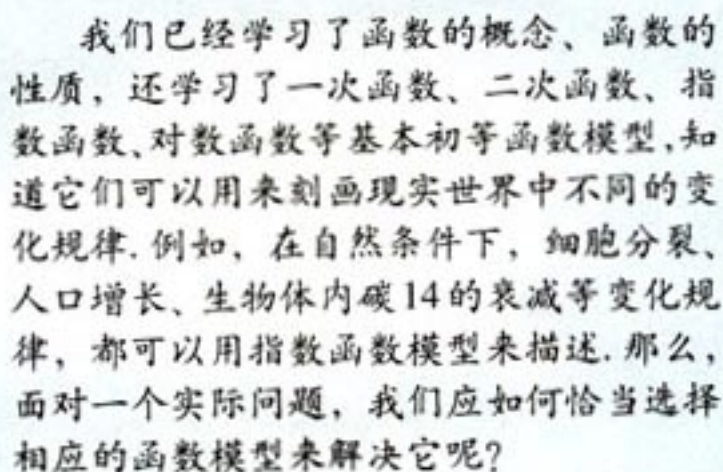 我们已经学习了函数的概念、函数的
性质，还学习了一次函数、二次函数、指
数函数、对数函数等基本初等函数模型，知
道它们可以用来刻画现实世界中不同的变
化规律.例如，在自然条件下，细胞分裂、
人口增长、生物体内碳14的衰减等变化规
律，都可以用指数函数模型来描述.那么，
面对一个实际问题，我们应如何恰当选择
相应的函数模型来解决它呢?